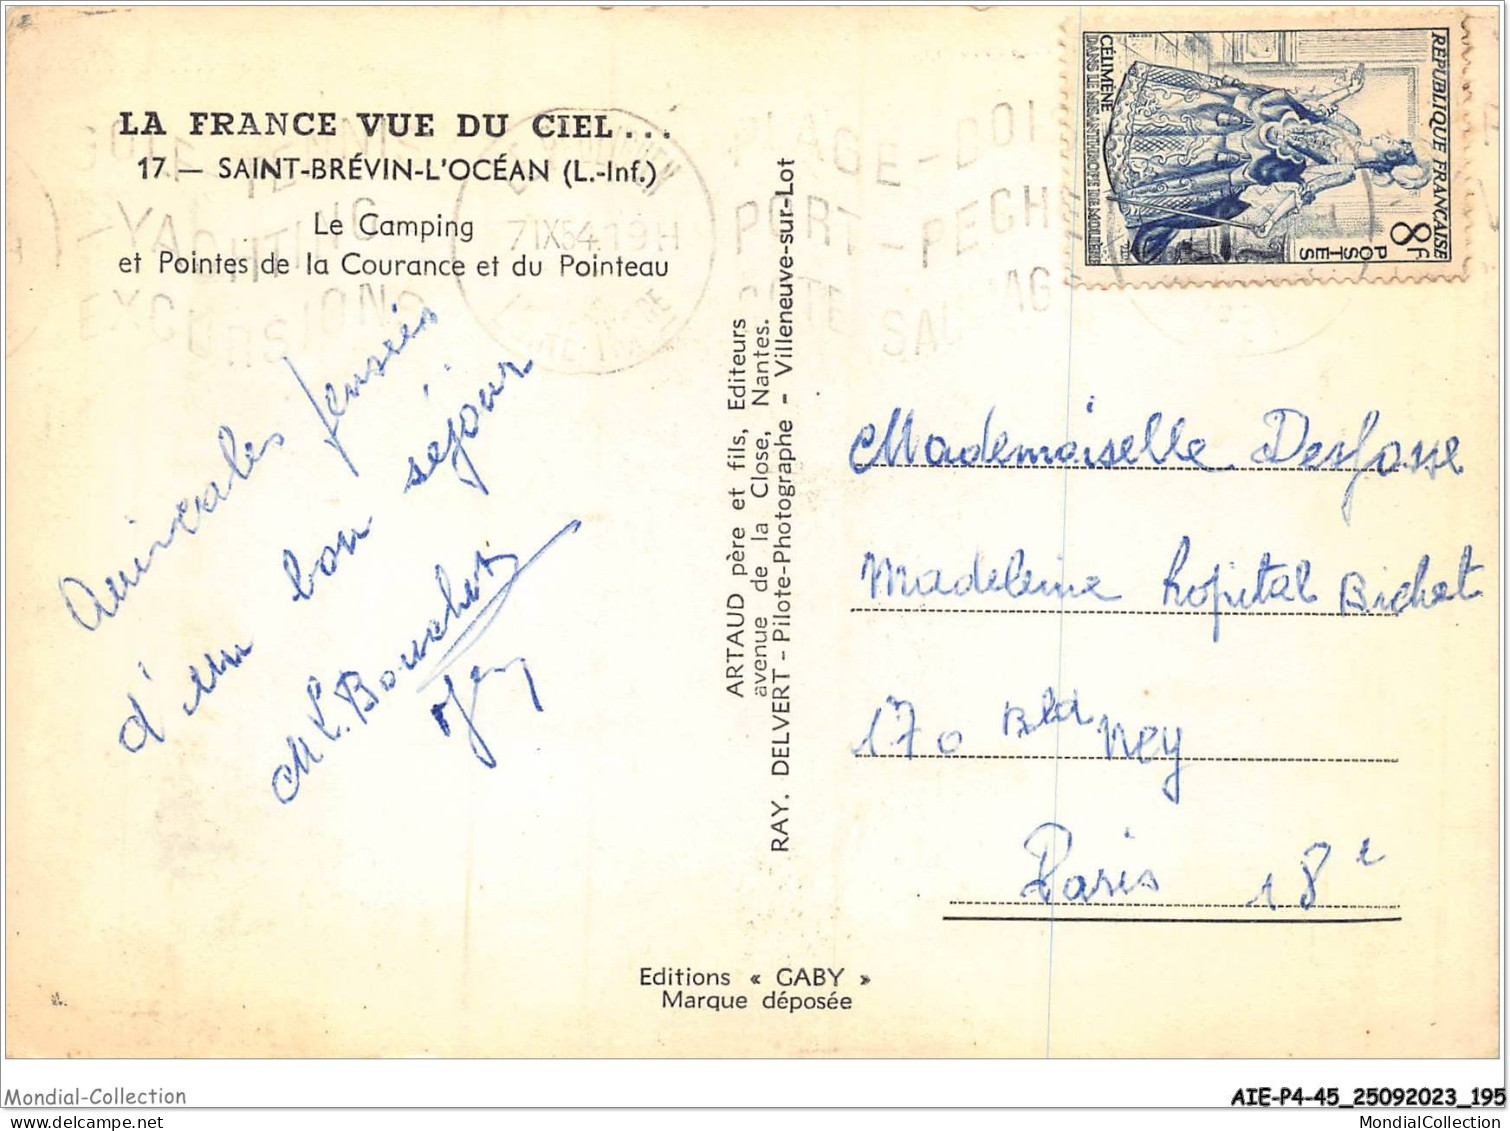 LA FRANCE VUE DU CIEL...
17 — SAINT-BRÉVIN-L'OCÉAN (L.-Inf.)
Le Camping
et Pointes de la Courance et du Pointeau
YACHTING
EXCURSIONS
7 IX 54. 19H
PLAGE-DOI
PORT-PECHE
COTE SAUVAGE
RÉPUBLIQUE FRANÇAISE
8F
POSTES
CÉLIMÈNE
DANS LE MISANTHROPE DE MOLIÈRE
Amicales pensées
d'un bon séjour
M L. Bouchet
ARTAUD père et fils, Editeurs
avenue de la Close, Nantes.
RAY. DELVERT - Pilote-Photographe - Villeneuve-sur-Lot
Mademoiselle Desfosse
Madeleine hopital Bichat
170 Bld Ney
Paris 18e
Editions « GABY »
Marque déposée
Mondial-Collection
AIE-P4-45_25092023_195
MondialCollection.com
MondialCollection.com